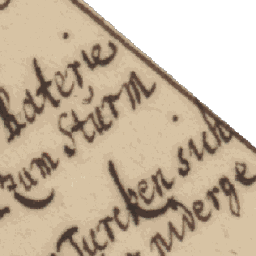 Baterie
zum Sturm
Turcken sich
niderge